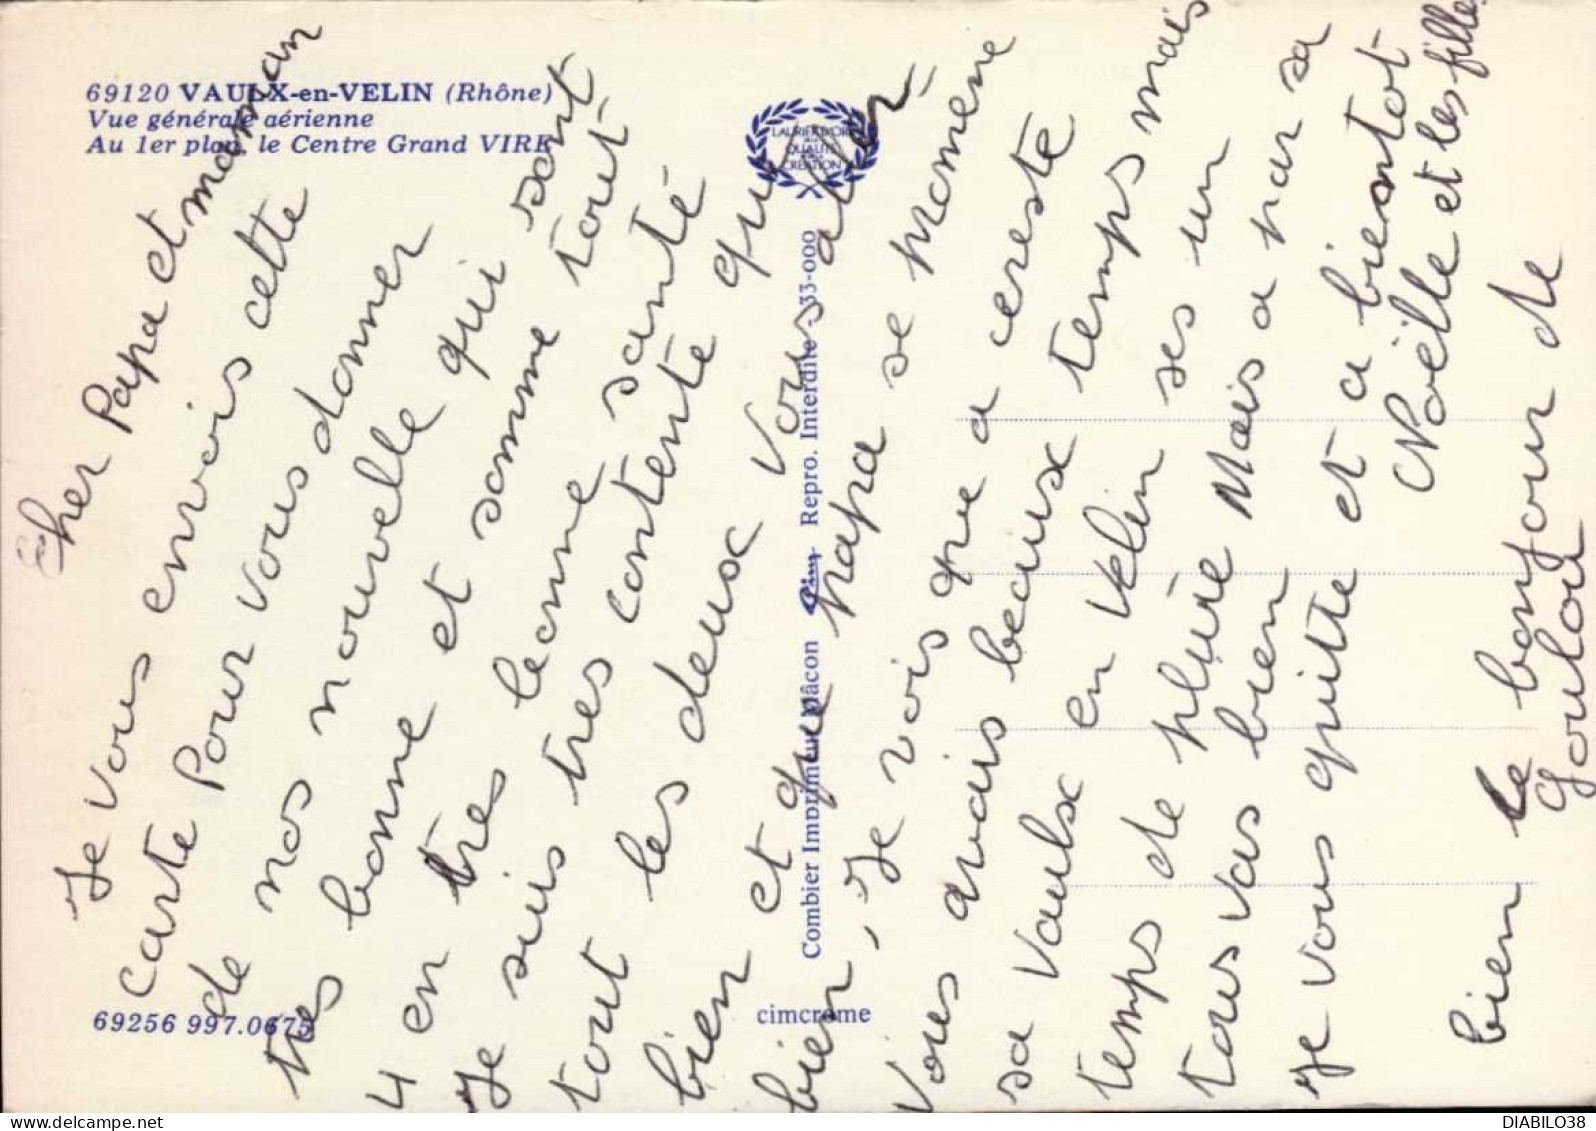 69120 VAULX-en-VELIN (Rhône)
Vue générale aérienne
Au 1er plan, le Centre Grand VIRE
LAURIER D'OR
QUALITÉ
CRÉATION
Cher Papa et maman
Je vous envois cette
carte Pour vous donner
de nos nouvelle qui sont
tres bonne et somme tout
4 en tres bonne santé
Je suis tres contente que
tout les deux vous aler
bien et que papa se promene
bien, Je vois que a cereste
vous avais beaux temps mais
sa Vaulx en Velin ses un
temps de pluie Mais a par sa
tous vas bien
Je vous quitte et a bientot
Noëlle et les fille
bien le bonjour de
Loulou
Combier Imprimeur Mâcon Cim Repro. Interdite - 33-000
69256 997.0675
cimcrome
DIABILO38